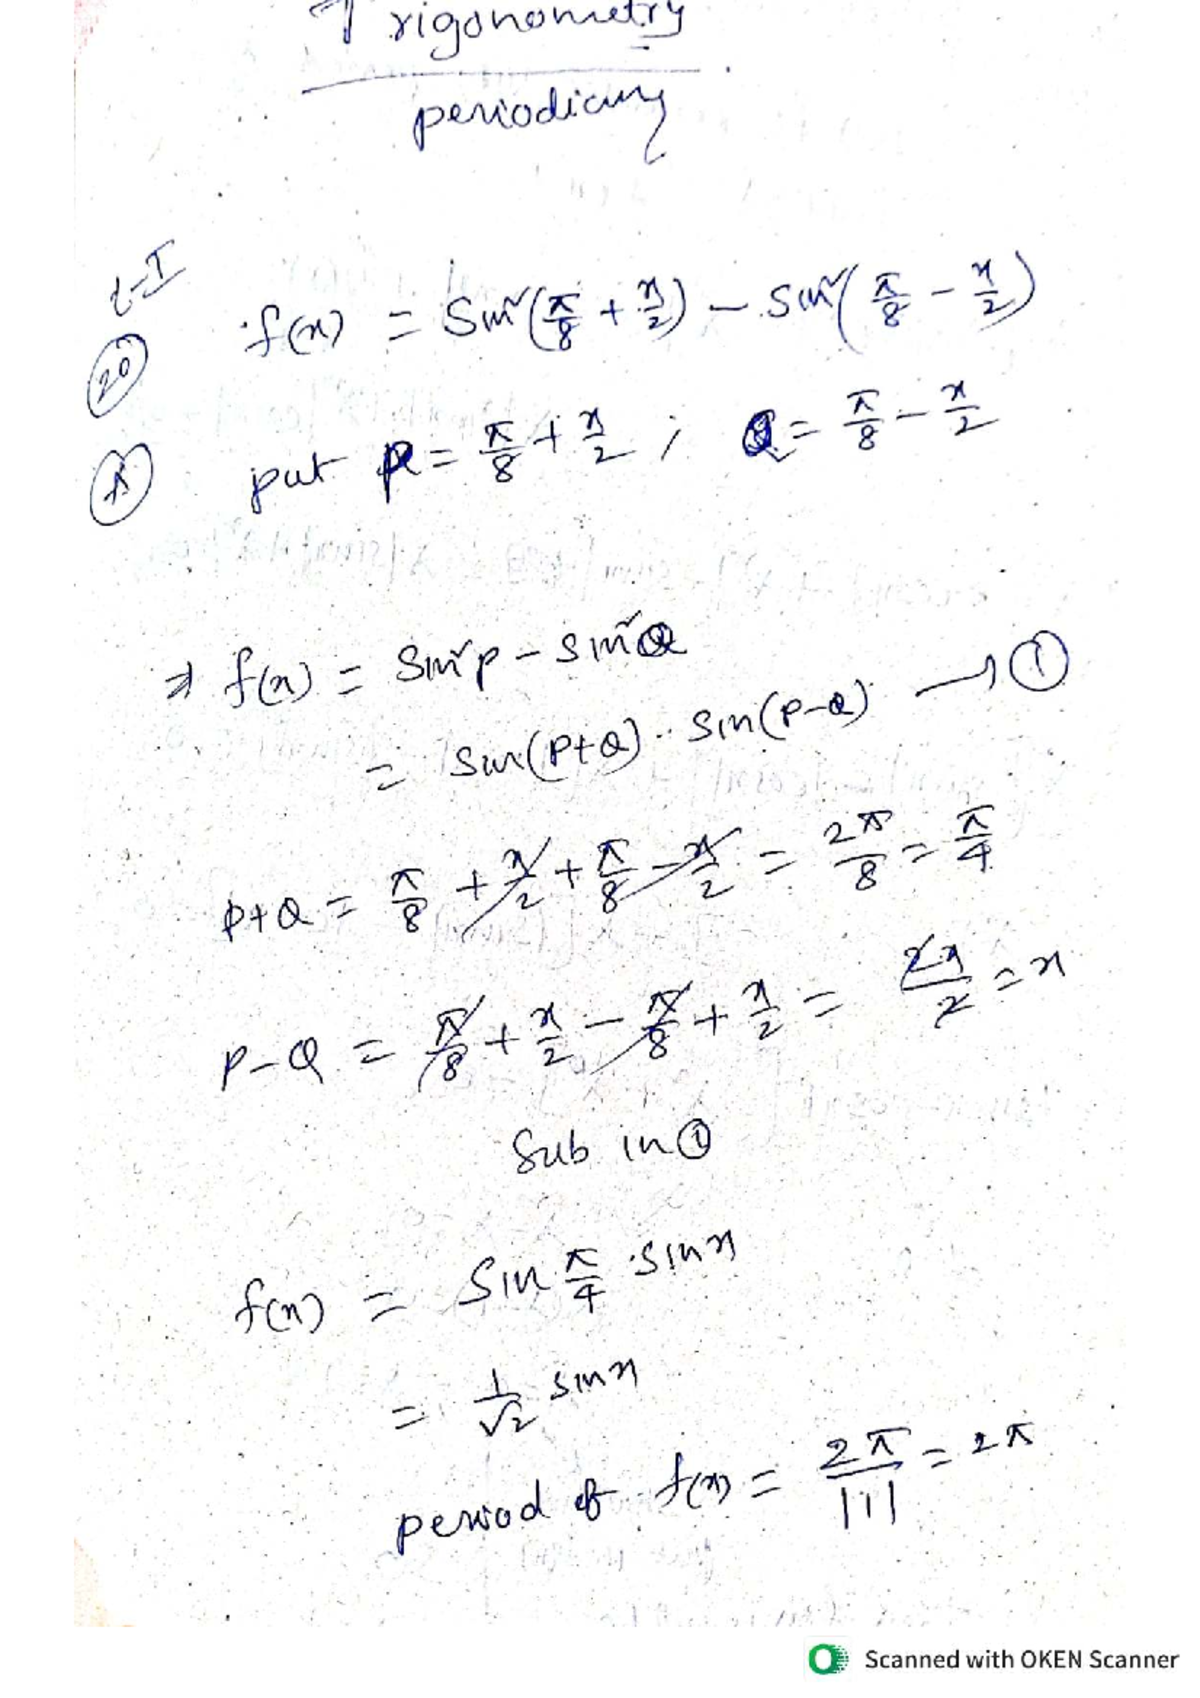 Trigonometry
periodicity
L-I
20 f(x) = Sin²(π/8 + x/2) - Sin²(π/8 - x/2)
A put P = π/8 + x/2 ; Q = π/8 - x/2
⇒ f(x) = Sin²P - Sin²Q
= Sin(P+Q) . Sin(P-Q) → ①
P+Q = π/8 + x/2 + π/8 - x/2 = 2π/8 = π/4
P-Q = π/8 + x/2 - π/8 + x/2 = 2x/2 = x
Sub in ①
f(x) = Sin π/4 . Sin x
= 1/√2 Sin x
period of f(x) = 2π/|1| = 2π
Scanned with OKEN Scanner